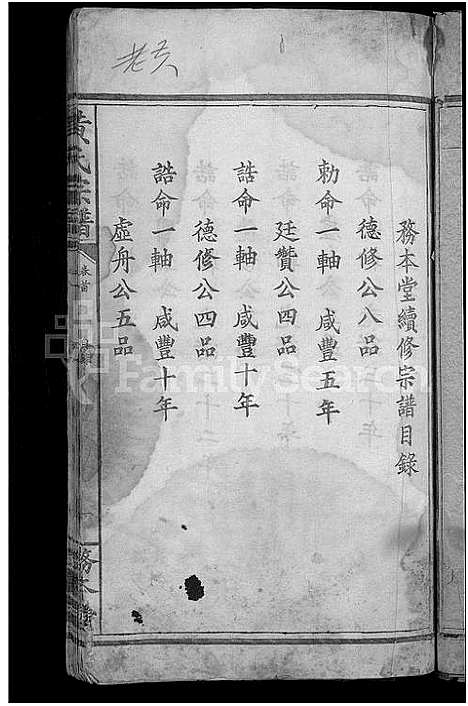 老吴
務本堂續修宗譜目錄
德修公八品
勅命一軸 咸豐五年
廷贊公四品
誥命一軸 咸豐十年
德修公四品
誥命一軸 咸豐十年
虛舟公五品
黄氏宗譜
卷首
目錄
務本堂
FamilySearch